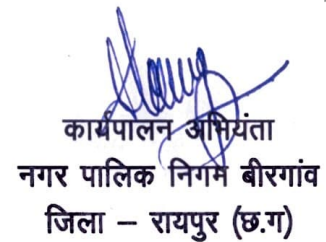 कार्यपालन अभियंता
नगर पालिक निगम बीरगांव
जिला – रायपुर (छ.ग)